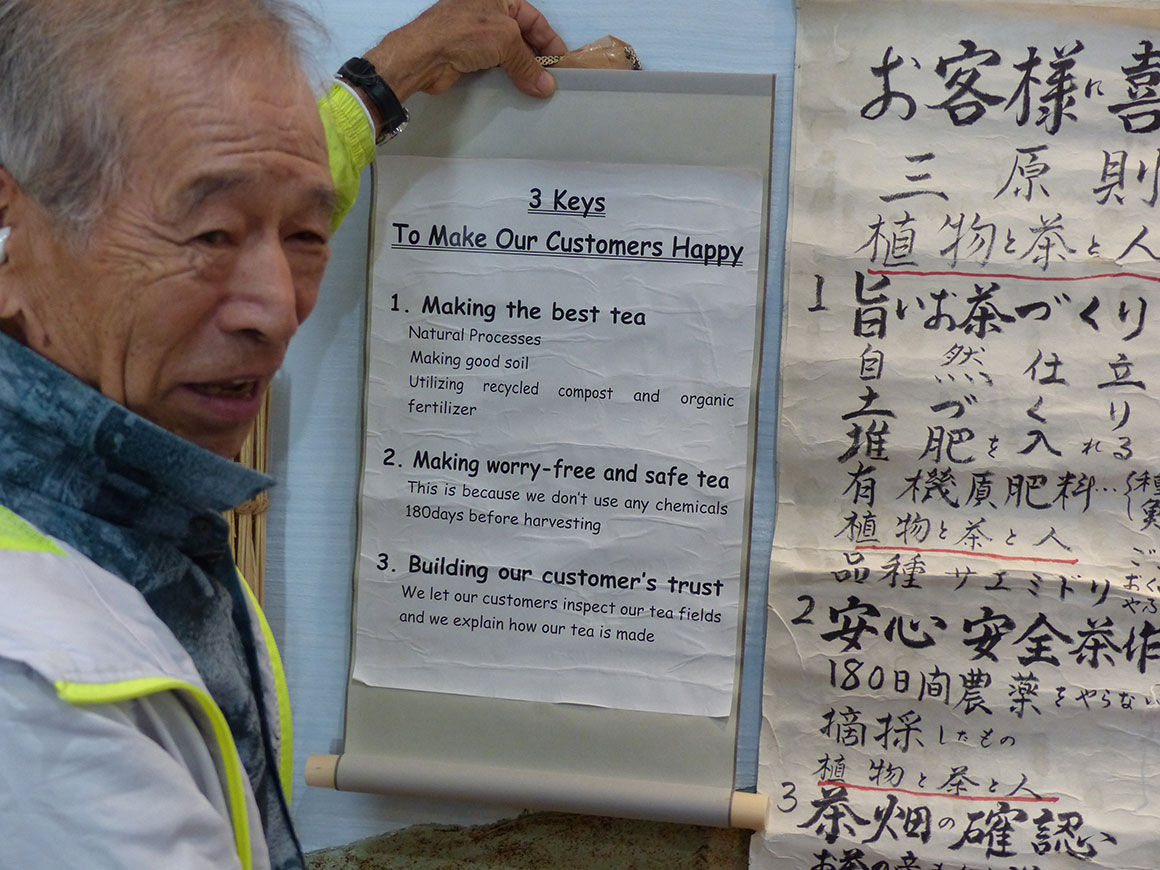 3 Keys
To Make Our Customers Happy
1. Making the best tea
Natural Processes
Making good soil
Utilizing recycled compost and organic
fertilizer
2. Making worry-free and safe tea
This is because we don't use any chemicals
180days before harvesting
3. Building our customer's trust
We let our customers inspect our tea fields
and we explain how our tea is made
お客様に喜
三原則
植物と茶と人
1 旨いお茶づくり
自然仕立
土づくり
堆肥を入れる
有機質肥料…
植物と茶と人
品種 サエミドリ
2 安心安全茶作
180日間農薬をやらない
摘採したもの
植物と茶と人
3 茶畑の確認